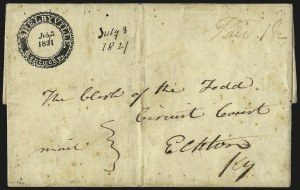 SHELBYVILLE
July
1821
KENTUCKY
July 3
1821
Paid
The Clerk of the Todd
Circuit Court
mail
Elkton
Ky